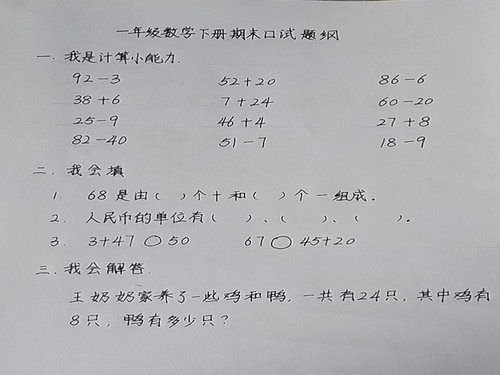 一年级数学下册期末口试题纲
一.我是计算小能力
92-3 52+20 86-6
38+6 7+24 60-20
25-9 46+4 27+8
82-40 51-7 18-9
二.我会填
1. 68是由( )个十和( )个一组成。
2. 人民币的单位有( )、( )、( )。
3. 3+47○50 67○45+20
三.我会解答
王奶奶家养了一些鸡和鸭,一共有24只,其中鸡有
8只,鸭有多少只?